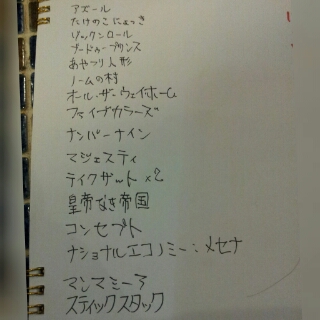 アズール
たけのこにょっき
ロックンロール
ブードゥープリンス
あやつり人形
ノームの村
オール・ザ・ウェイホーム
ファイブカラーズ
ナンバーナイン
マジェスティ
テイクザット×2
皇帝なき帝国
コンセプト
ナショナルエコノミー:メセナ
マンマミーア
スティックスタック